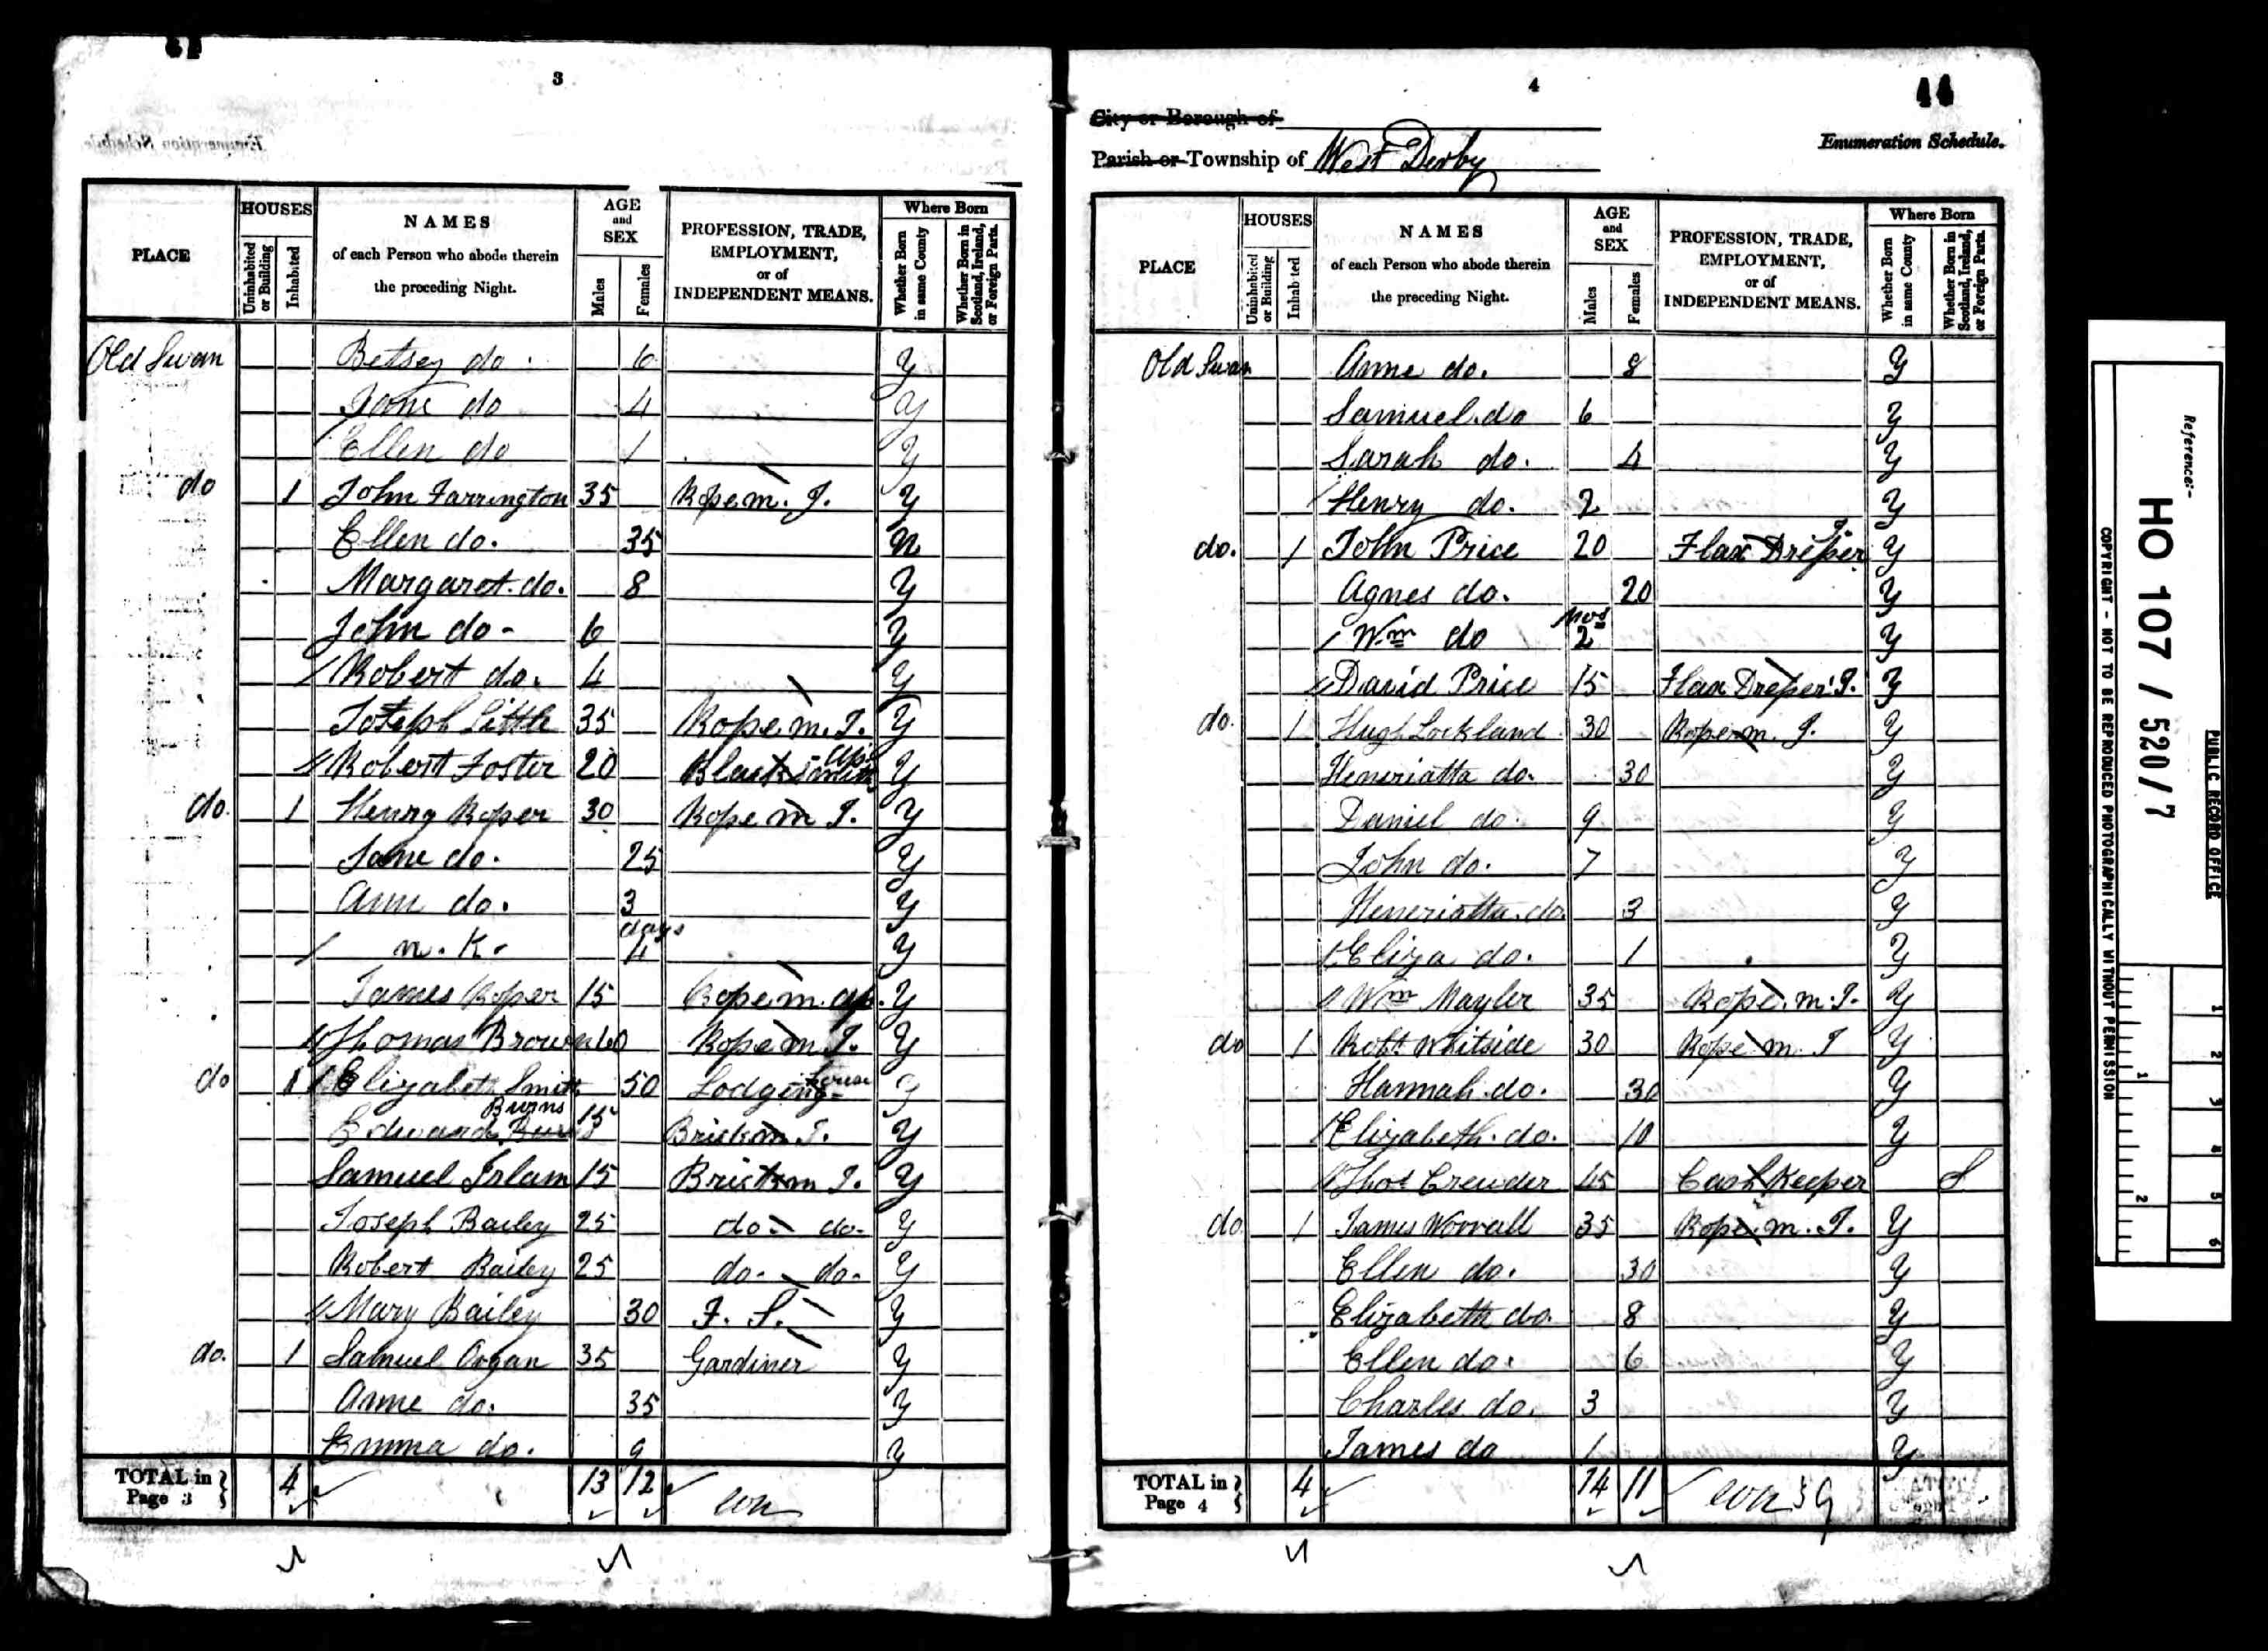 3
Enumeration Schedule.
PLACE
HOUSES
Uninhabited or Building
Inhabited
NAMES
of each Person who abode therein
the preceding Night.
AGE
and
SEX
Males
Females
PROFESSION, TRADE,
EMPLOYMENT,
or of
INDEPENDENT MEANS.
Where Born
Whether Born in same County
Whether Born in Scotland, Ireland, or Foreign Parts.
Old Swan Betsey do 6 Y
Jane do 4 Y
Ellen do 1 Y
do 1 John Farrington 35 Rope m. J. Y
Ellen do. 35 N
Margaret do. 8 Y
John do - 6 Y
Robert do. 4 Y
Joseph Little 35 Rope m. J. Y
Robert Foster 20 Blacksmith Ap. Y
do. 1 Henry Roper 30 Rope m J. Y
Jane do. 25 Y
Ann do. 3 Y
n. K. days 4 Y
James Roper 15 Rope m. Ap. Y
Thomas Brown 60 Rope m J. Y
do 1 Elizabeth Smith 50 Lodging house Y
Edward Burns Burns 15 Brick m J. Y
Samuel Irlam 15 Brick m J. Y
Joseph Bailey 25 do. do. Y
Robert Bailey 25 do. do. Y
Mary Bailey 30 F. S. Y
do. 1 Samuel Organ 35 Gardiner Y
Anne do. 35 Y
Emma do. 9 Y
TOTAL in Page 3 4 13 12
4
44
City or Borough of
Parish or Township of West Derby
Enumeration Schedule.
PLACE
HOUSES
Uninhabited or Building
Inhabited
NAMES
of each Person who abode therein
the preceding Night.
AGE
and
SEX
Males
Females
PROFESSION, TRADE,
EMPLOYMENT,
or of
INDEPENDENT MEANS.
Where Born
Whether Born in same County
Whether Born in Scotland, Ireland, or Foreign Parts.
Old Swan Anne do. 8 Y
Samuel do 6 Y
Sarah do. 4 Y
Henry do. 2 Y
do. 1 John Price 20 Flax Dreser J. Y
Agnes do. 20 Y
Wm do mos 2 Y
David Price 15 Flax Dreser J. Y
do. 1 Hugh Lockland 30 Rope m. J. Y
Heneriatta do. 30 Y
Daniel do. 9 Y
John do. 7 Y
Heneriatta do. 3 Y
Eliza do. 1 Y
Wm Mayler 35 Rope m. J. Y
do 1 Robt Whitside 30 Rope m. J Y
Hannah do. 30 Y
Elizabeth do. 10 Y
Thos Crewder 45 Cash Keeper S
do 1 James Worrall 35 Rope m. J. Y
Ellen do. 30 Y
Elizabeth do. 8 Y
Ellen do. 6 Y
Charles do. 3 Y
James do 1 Y
TOTAL in Page 4 4 14 11
Reference:-
HO 107 / 520/7
PUBLIC RECORD OFFICE
COPYRIGHT - NOT TO BE REPRODUCED PHOTOGRAPHICALLY WITHOUT PERMISSION
1 2 3 4 5 6
1 2